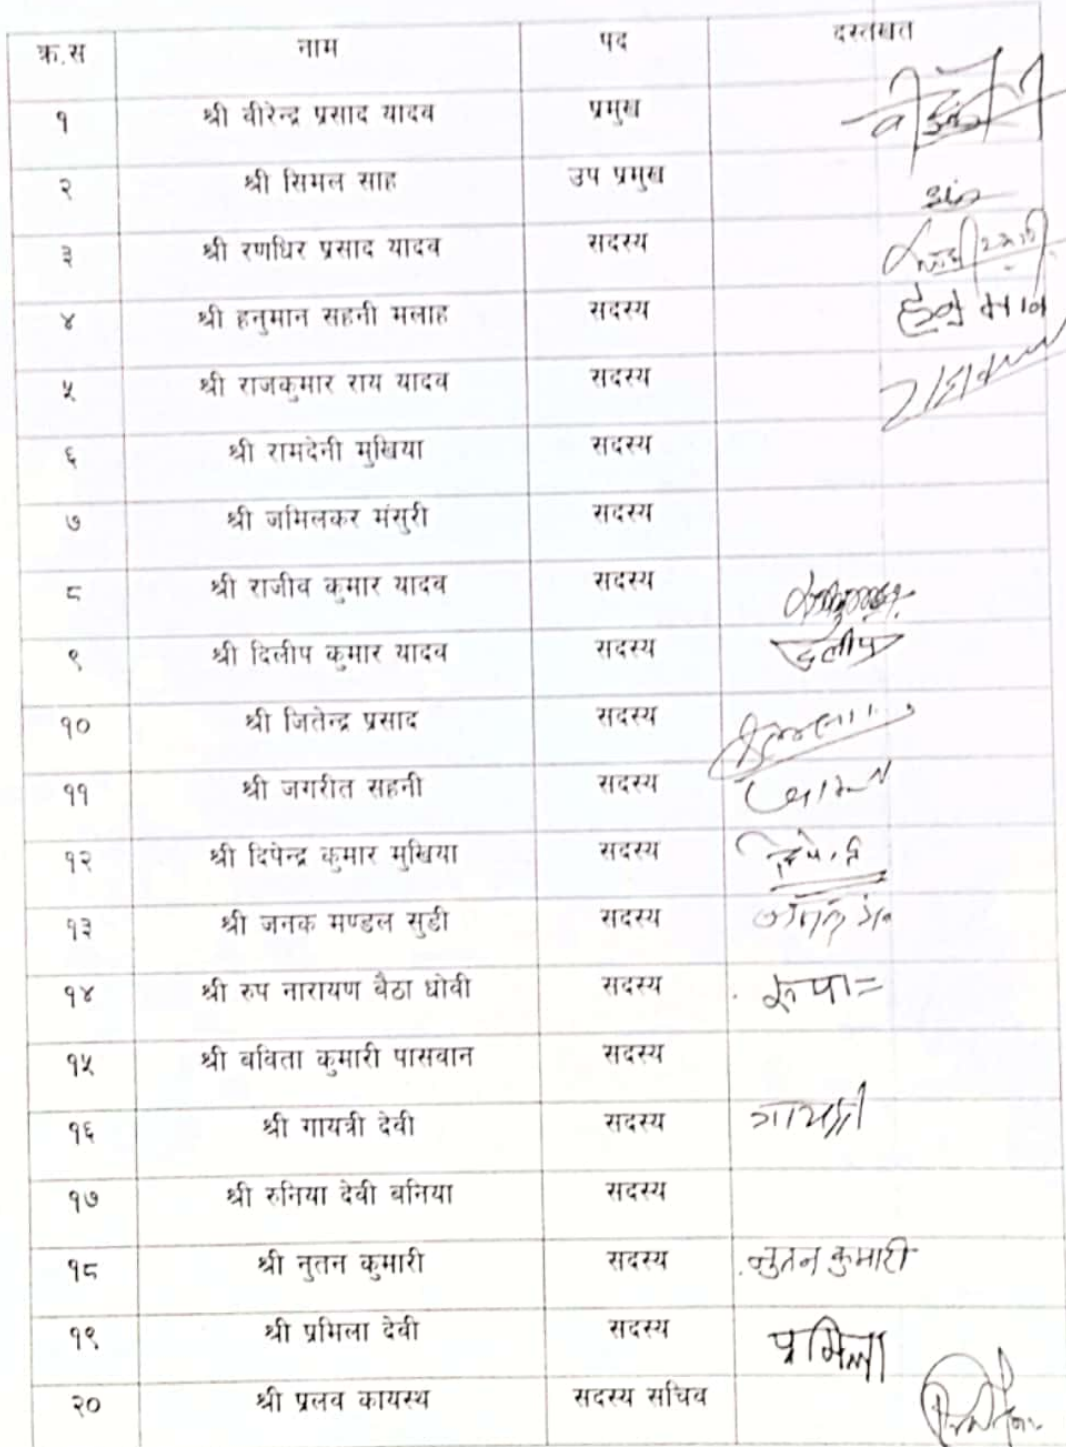 क्र.स नाम पद दस्तखत
१ श्री वीरेन्द्र प्रसाद यादव प्रमुख
२ श्री सिमल साह उप प्रमुख
३ श्री रणधिर प्रसाद यादव सदस्य
४ श्री हनुमान सहनी मलाह सदस्य हनुमान
५ श्री राजकुमार राय यादव सदस्य
६ श्री रामदेनी मुखिया सदस्य
७ श्री जमिलकर मंसुरी सदस्य
८ श्री राजीव कुमार यादव सदस्य
९ श्री दिलीप कुमार यादव सदस्य दलीप
१० श्री जितेन्द्र प्रसाद सदस्य
११ श्री जगरीत सहनी सदस्य
१२ श्री दिपेन्द्र कुमार मुखिया सदस्य
१३ श्री जनक मण्डल सुडी सदस्य
१४ श्री रुप नारायण बैठा धोवी सदस्य
१५ श्री बविता कुमारी पासवान सदस्य
१६ श्री गायत्री देवी सदस्य गायत्री
१७ श्री रुनिया देवी बनिया सदस्य
१८ श्री नुतन कुमारी सदस्य नुतन कुमारी
१९ श्री प्रमिला देवी सदस्य प्रमिला
२० श्री प्रलव कायस्थ सदस्य सचिव